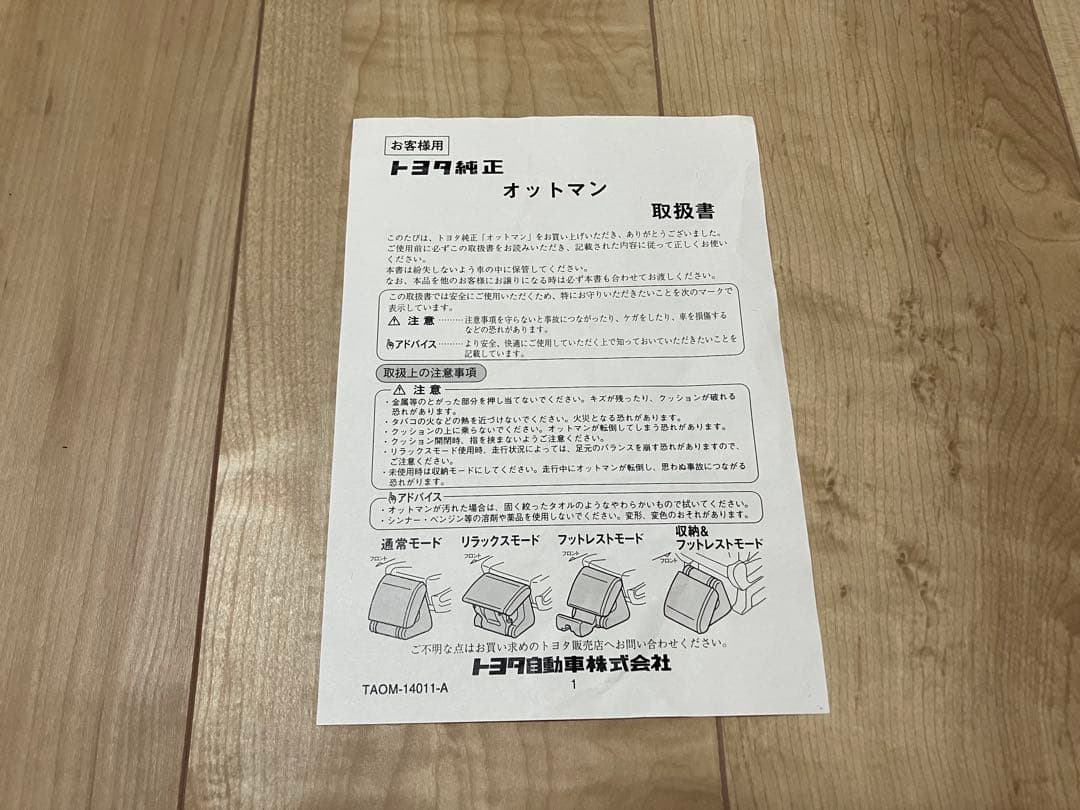 お客様用
トヨタ純正
オットマン
取扱書
このたびは、トヨタ純正「オットマン」をお買い上げいただき、ありがとうございました。
ご使用前に必ずこの取扱書をお読みいただき、記載された内容に従って正しくお使い
ください。
本書は紛失しないよう車の中に保管してください。
なお、本品を他のお客様にお譲りになる時は必ず本書も合わせてお渡しください。
この取扱書では安全にご使用いただくため、特にお守りいただきたいことを次のマークで
表示しています。
⚠ 注意 ………注意事項を守らないと事故につながったり、ケガをしたり、車を損傷する
などの恐れがあります。
アドバイス………より安全、快適にご使用していただく上で知っておいていただきたいことを
記載しています。
取扱上の注意事項
⚠ 注意
・金属等のとがった部分を押し当てないでください。キズが残ったり、クッションが破れる
恐れがあります。
・タバコの火などの熱を近づけないでください。火災となる恐れがあります。
・クッションの上に乗らないでください。オットマンが転倒してしまう恐れがあります。
・クッション開閉時、指を挟まないようご注意ください。
・リラックスモード使用時、走行状況によっては、足元のバランスを崩す恐れがありますので、
ご注意ください。
・未使用時は収納モードにしてください。走行中にオットマンが転倒し、思わぬ事故につながる
恐れがります。
アドバイス
・オットマンが汚れた場合は、固く絞ったタオルのようなやわらかいもので拭いてください。
・シンナー・ベンジン等の溶剤や薬品を使用しないでください。変形、変色のおそれがあります。
通常モード リラックスモード フットレストモード 収納&
フットレストモード
フロント フロント フロント フロント
ご不明な点はお買い求めのトヨタ販売店へお問い合わせください。
トヨタ自動車株式会社
TAOM-14011-A 1